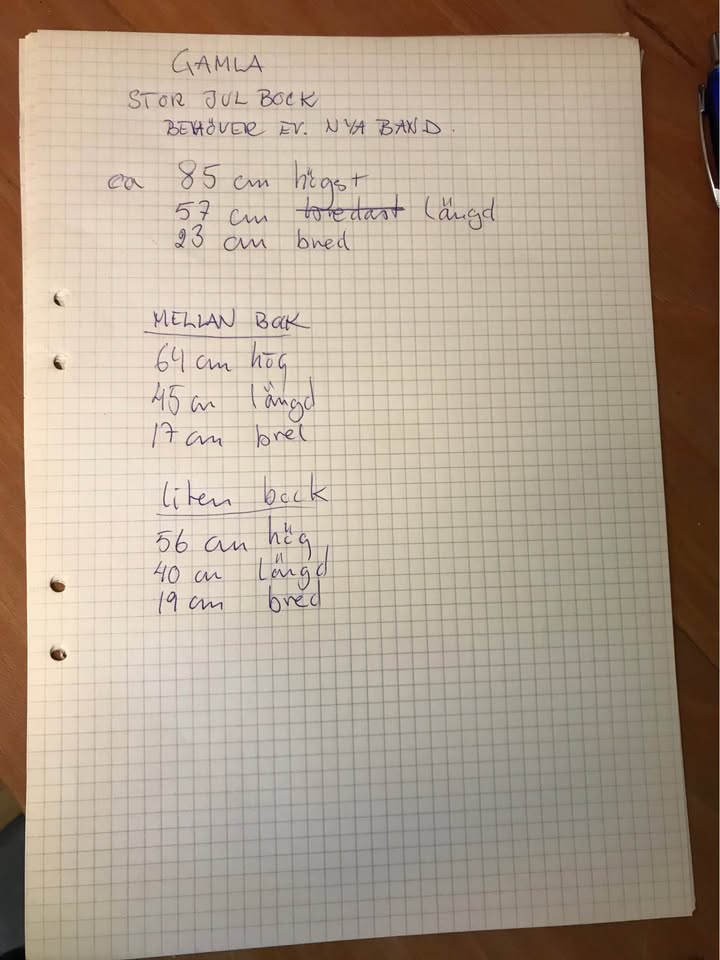 GAMLA
STOR JULBOCK
BEHÖVER EV. NYA BAND.
ca 85 cm högst
57 cm bredast längd
23 cm bred
MELLAN BOCK
64 cm hög
45 cm längd
17 cm bred
liten bock
56 cm hög
40 cm längd
19 cm bred